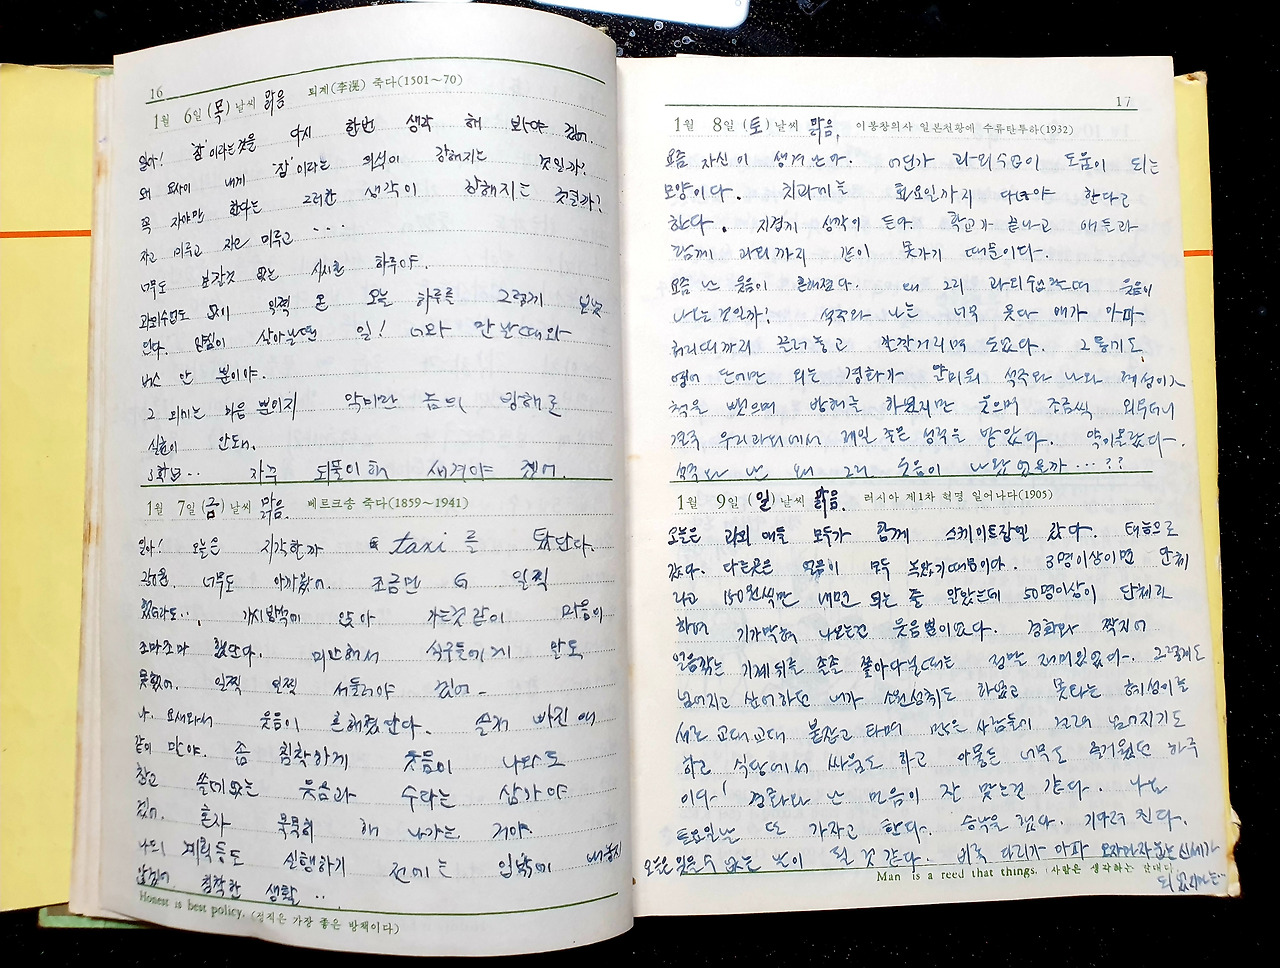 16
1월 6일 (목) 날씨 맑음 퇴계(李滉) 죽다(1501~70)
일아! '잠'이라는것을 다시 한번 생각 해 봐야 겠어.
왜 요사이 내게 '잠'이라는 의식이 강해지는 것일까?
꼭 자야만 한다는 그러한 생각이 강해지는 것일까?
자고 미루고 자고 미루고 ...
너무도 보잘것 없는 시시한 하루야.
과외수업도 없이 일찍 온 오늘 하루를 그렇게 보냈
단다. 일! 너와 만날때와
버스 안 뿐이야.
그 의미는 마음 뿐이지 악마란 놈의 방해로
실현이 안돼.
자주 되풀이해 새겨야 겠어.
1월 7일 (금) 날씨 맑음. 베르크송 죽다(1859~1941)
일아! 오늘은 지각할까 taxi 를 탔단다.
너무도 아까웠어. 조금만 더 일찍
가시방석에 앉아 가는것 같이 마음이
조마조마 했단다. 미안해서 식구들에게 말도
못했어. 일찍 일찍 서둘러야 겠어.
나 요새와서 웃음이 흔해졌단다. 쓸개 빠진 애
같이 말야. 좀 침착하게 웃음이 나와도
참고 쓸데없는 웃음과 수다는 삼가야
겠어. 혼자 묵묵히 해 나가는 거야.
나의 계획등도 실행하기 전에는 입밖에 내놓지
않겠어. 침착한 생활 ..
Honest is best policy. (정직은 가장 좋은 방책이다)
17
1월 8일 (토) 날씨 맑음. 이봉창의사 일본천황에 수류탄투하(1932)
요즘 자신이 생겨난다. 어딘가 과외수업이 도움이 되는
모양이다. 치과에는 화요일까지 다녀야 한다고
한다. 지겹게 생각이 든다. 학교가 끝나고 애들과
함께 과외까지 같이 못가기 때문이다.
요즘 난 웃음이 흔해졌다. 왜 그리 과외수업때 웃음이
나는 것일까? 석주와 나는 너무 웃다 애가 아파
허리띠까지 끌러놓고 깔깔거리며 웃었다. 그통에도
영어 단어만 외는 경화가 얄미워 석주와 나와 혜성이가
책을 뺏으며 방해를 하였지만 웃으며 조금씩 외우더니
결국 우리과외에서 제일 좋은 성적을 받았다. 약이올랐다.
석주와 난 왜 그리 웃음이 나왔었을까 ...??
1월 9일 (일) 날씨 맑음. 러시아 제1차 혁명 일어나다(1905)
오늘은 과외 애들 모두가 함께 스케이트장엘 갔다. 태능으로
갔다. 다른곳은 얼음이 모두 녹았기때문이다. 3명이상이면 단체
라고 150원씩만 내면 되는 줄 알았는데 50명이상이 단체라
하여 기가막혀 나오는건 웃음뿐이었다. 경화와 짝지어
얼음깎는 기계뒤를 졸졸 쫓아다닐때는 정말 재미있었다. 그렇게도
넘어지고 싶어하던 내가 소원성취도 하였고 못타는 혜성이를
셋은 교대교대 붙잡고 타며 많은 사람들이 걸려 넘어지기도
하고 식당에서 싸움도 하고 아뭏든 너무도 즐거웠던 하루
이다! 경화와 난 마음이 잘 맞는것 같다. 다음
토요일날 또 가자고 한다. 승낙을 했다. 기다려 진다.
오늘은 잊을수 없는 날이 될 것 같다. 비록 다리가 아파 오자마자 눕는 신세가
Man is a reed that things. (사람은 생각하는 갈대다)
되었지마는..